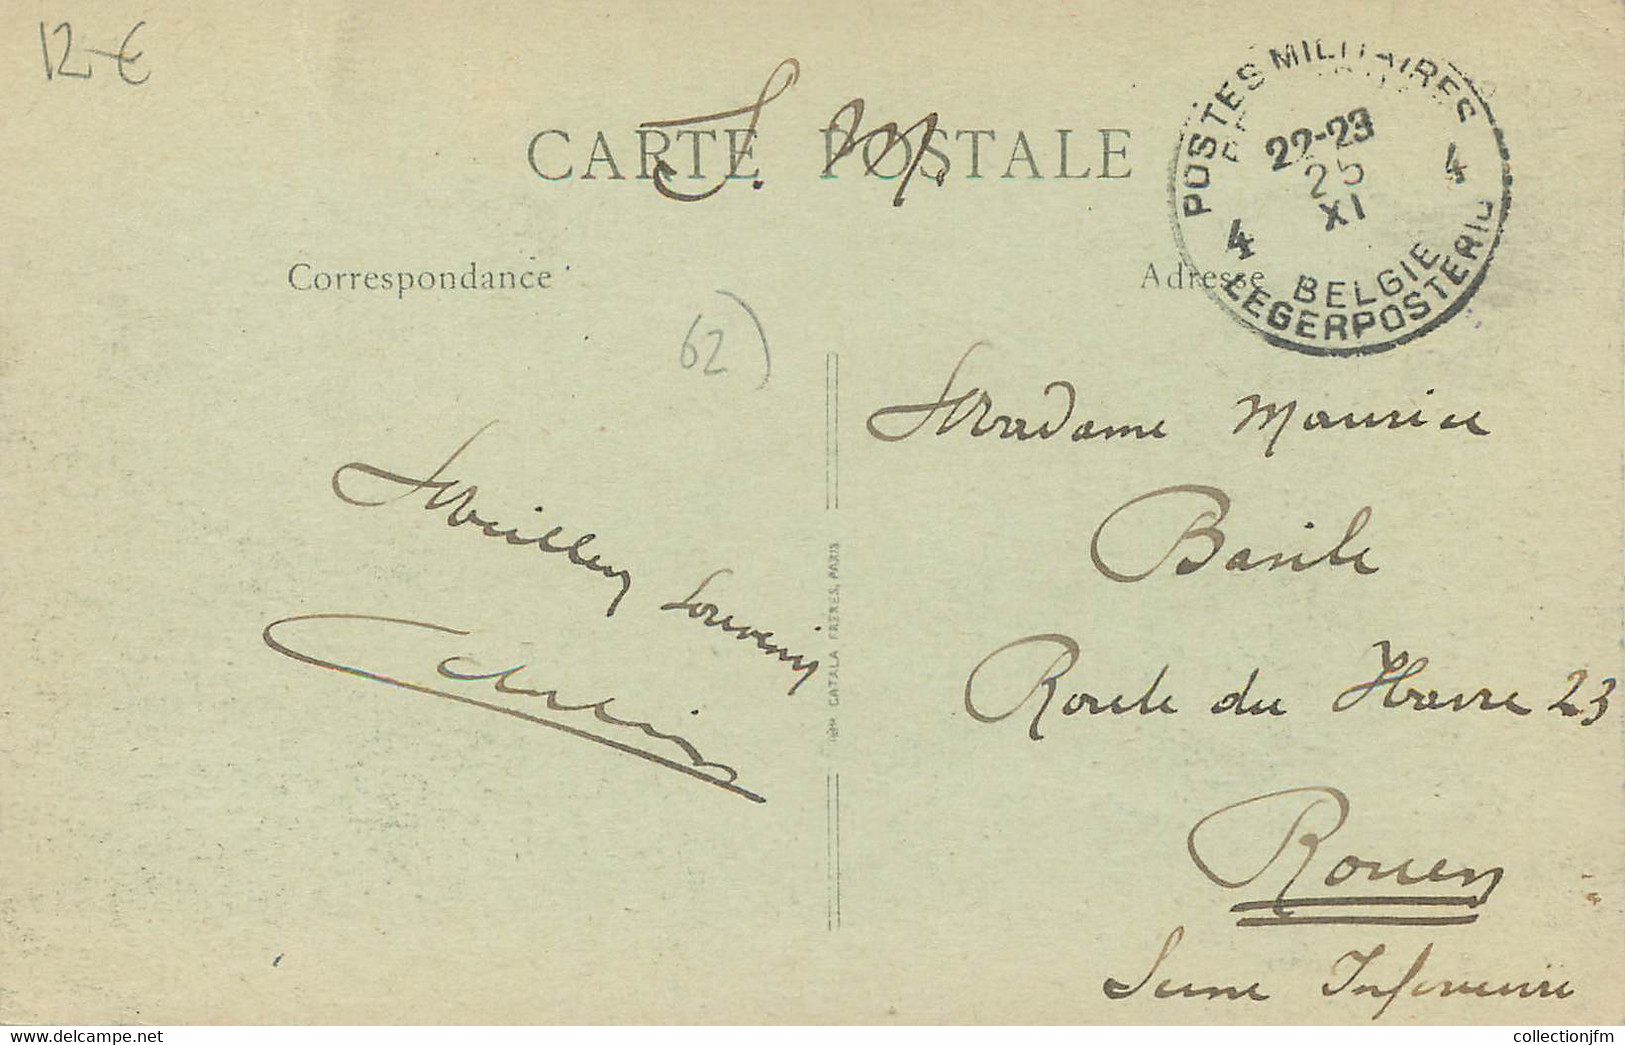 12-€
S. M.
CARTE POSTALE
POSTES MILITAIRES
22-23
25
XI
4 4
BELGIE
LEGERPOSTERIJ
Correspondance
Adresse
62)
Madame Maurice
Basile
Route du Havre 23
Rouen
Seine Inférieure
Meilleurs
Souvenirs
CATALA FRERES, PARIS
collectionjfm